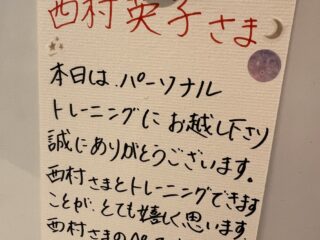 西村英子さま
本日は、パーソナル
トレーニングにお越し下さり
誠にありがとうございます。
西村さまとトレーニングできます
ことが、とても嬉しく思います
西村さまの